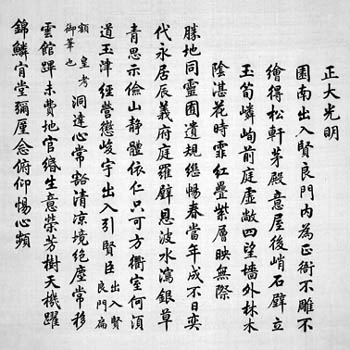 正大光明
園南出入賢良門內為正衙不雕不
繪得松軒茅殿意屋後峭石壁立
玉筍嶙峋前庭虛敞四望墻外林木
陰湛花時霏紅疊紫層映無際
勝地同靈囿遺規繼暢春當年成不日奕
代永居辰義府庭羅璧恩波水瀉銀草
青思示儉山靜體依仁只可方衢室何須
道玉津經營懲峻宇出入引賢臣出入賢良門扁
額皇考御筆也洞達心常豁清凉境絕塵常移
雲館蹕未費地官緡生意榮芳樹天機躍
錦鱗肯堂彌厪念俯仰惕心頻